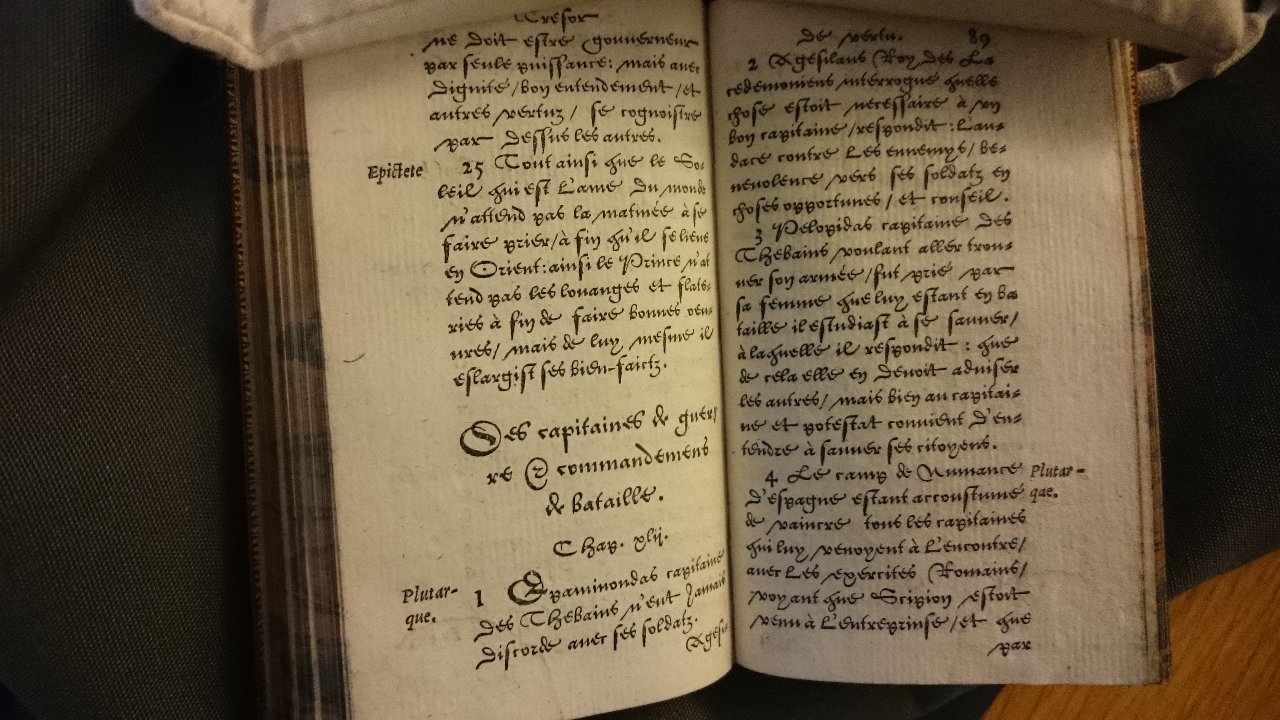 Tresor
ne doit estre gouverneur
par seule puissance: mais avec
dignité/bon entendement/et
autres vertuz/ se cognoistre
par dessus les autres.
Epictete
25 Tout ainsi que le So-
leil qui est l'ame du monde
n'attend pas la matinée à se
faire prier/à fin qu'il se lieue
en Orient: ainsi le Prince n'at
tend pas les louanges et flate-
ries à fin de faire bonnes oeu-
ures/ mais de luy mesme il
eslargist ses bien-faictz.
Des capitaines de guer-
re & commandemens
de bataille.
Chap. xlij.
Plutar-
que.
1 Epaminondas capitaine
des Thebains n'eut jamais
discorde auec ses soldatz.
Agesi
de vertu. 89
2 Agesilaus Roy des La
cedemoniens interrogué quelle
chose estoit necessaire à vn
bon capitaine/respondit: L'au-
dace contre les ennemys/be-
neuolence vers ses soldatz en
choses opportunes/ et conseil.
3 Pelopidas capitaine des
Thebains voulant aller trou-
uer son armée/fut prié par
sa femme que luy estant en ba
taille il estudiast à se sauuer/
à laquelle il respondit: que
de cela elle en deuoit aduiser
les autres/ mais bien au capitai-
ne et potestat conuient d'en-
tendre à sauuer ses citoyens.
4 Le camp de Numance
d'espagne estant accoustumé
de vaincre tous les capitaines
qui luy venoyent à l'encontre/
auec les exercites Romains/
voyant que Scipion estoit
venu à l'entreprinse/et que
par
Plutar-
que.